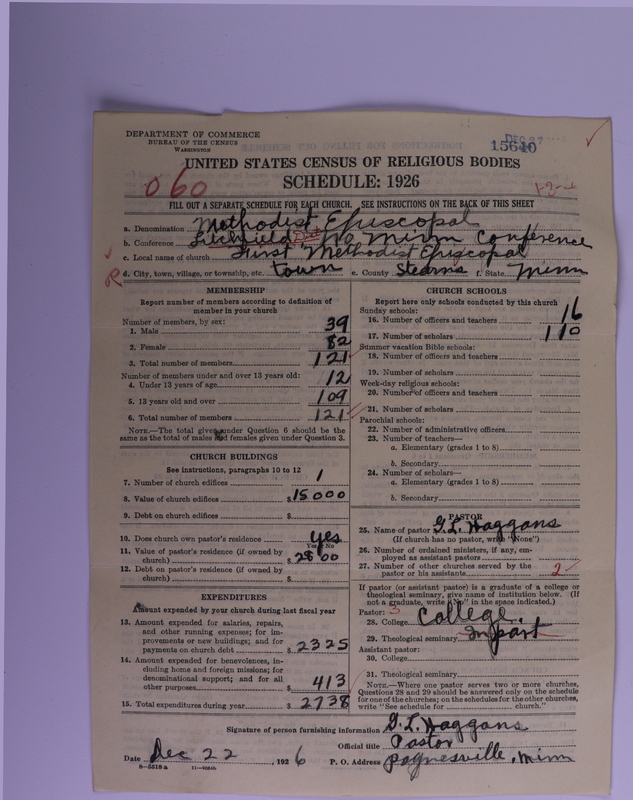 DEPARTMENT OF COMMERCE
BUREAU OF THE CENSUS
WASHINGTON
DEC 27
15640
UNITED STATES CENSUS OF RELIGIOUS BODIES
SCHEDULE: 1926
060
1-3-4
FILL OUT A SEPARATE SCHEDULE FOR EACH CHURCH. SEE INSTRUCTIONS ON THE BACK OF THIS SHEET
a. Denomination Methodist Episcopal
b. Conference Litchfield Dist No Minn Conference
c. Local name of church First Methodist Episcopal
R d. City, town, village, or township, etc. town e. County Stearns f. State Minn
MEMBERSHIP
Report number of members according to definition of
member in your church
Number of members, by sex:
1. Male 39
2. Female 82
3. Total number of members 121
Number of members under and over 13 years old:
4. Under 13 years of age 12
5. 13 years old and over 109
6. Total number of members 121
NOTE.—The total given under Question 6 should be
same as the total of males and females given under Question 3.
CHURCH BUILDINGS
See instructions, paragraphs 10 to 12
7. Number of church edifices 1
8. Value of church edifices $15000
9. Debt on church edifices $
10. Does church own pastor's residence yes
Yes or No
11. Value of pastor's residence (if owned by
church) $2800
12. Debt on pastor's residence (if owned by
church) $
EXPENDITURES
Amount expended by your church during last fiscal year
13. Amount expended for salaries, repairs,
and other running expenses; for im-
provements or new buildings; and for
payments on church debt $2325
14. Amount expended for benevolences, in-
cluding home and foreign missions; for
denominational support; and for all
other purposes $413
15. Total expenditures during year $2738
CHURCH SCHOOLS
Report here only schools conducted by this church
Sunday schools:
16. Number of officers and teachers 16
17. Number of scholars 110
Summer vacation Bible schools:
18. Number of officers and teachers
19. Number of scholars
Week-day religious schools:
20. Number of officers and teachers
21. Number of scholars
Parochial schools:
22. Number of administrative officers
23. Number of teachers—
a. Elementary (grades 1 to 8)
b. Secondary
24. Number of scholars—
a. Elementary (grades 1 to 8)
b. Secondary
PASTOR
25. Name of pastor G. L. Haggans
(If church has no pastor, write "None")
26. Number of ordained ministers, if any, em-
ployed as assistant pastors
27. Number of other churches served by the
pastor or his assistants 2
If pastor (or assistant pastor) is a graduate of a college or
theological seminary, give name of institution below. (If
not a graduate, write "No" in the space indicated.)
Pastor: 3
28. College College.
29. Theological seminary In part
Assistant pastor:
30. College
31. Theological seminary
NOTE.—Where one pastor serves two or more churches,
Questions 28 and 29 should be answered only on the schedule
for one of the churches; on the schedules for the other churches,
write "See schedule for church."
Signature of person furnishing information G. L. Haggans
Official title Pastor
Date Dec 22, 1926 P. O. Address Paynesville, Minn
8—5518 a